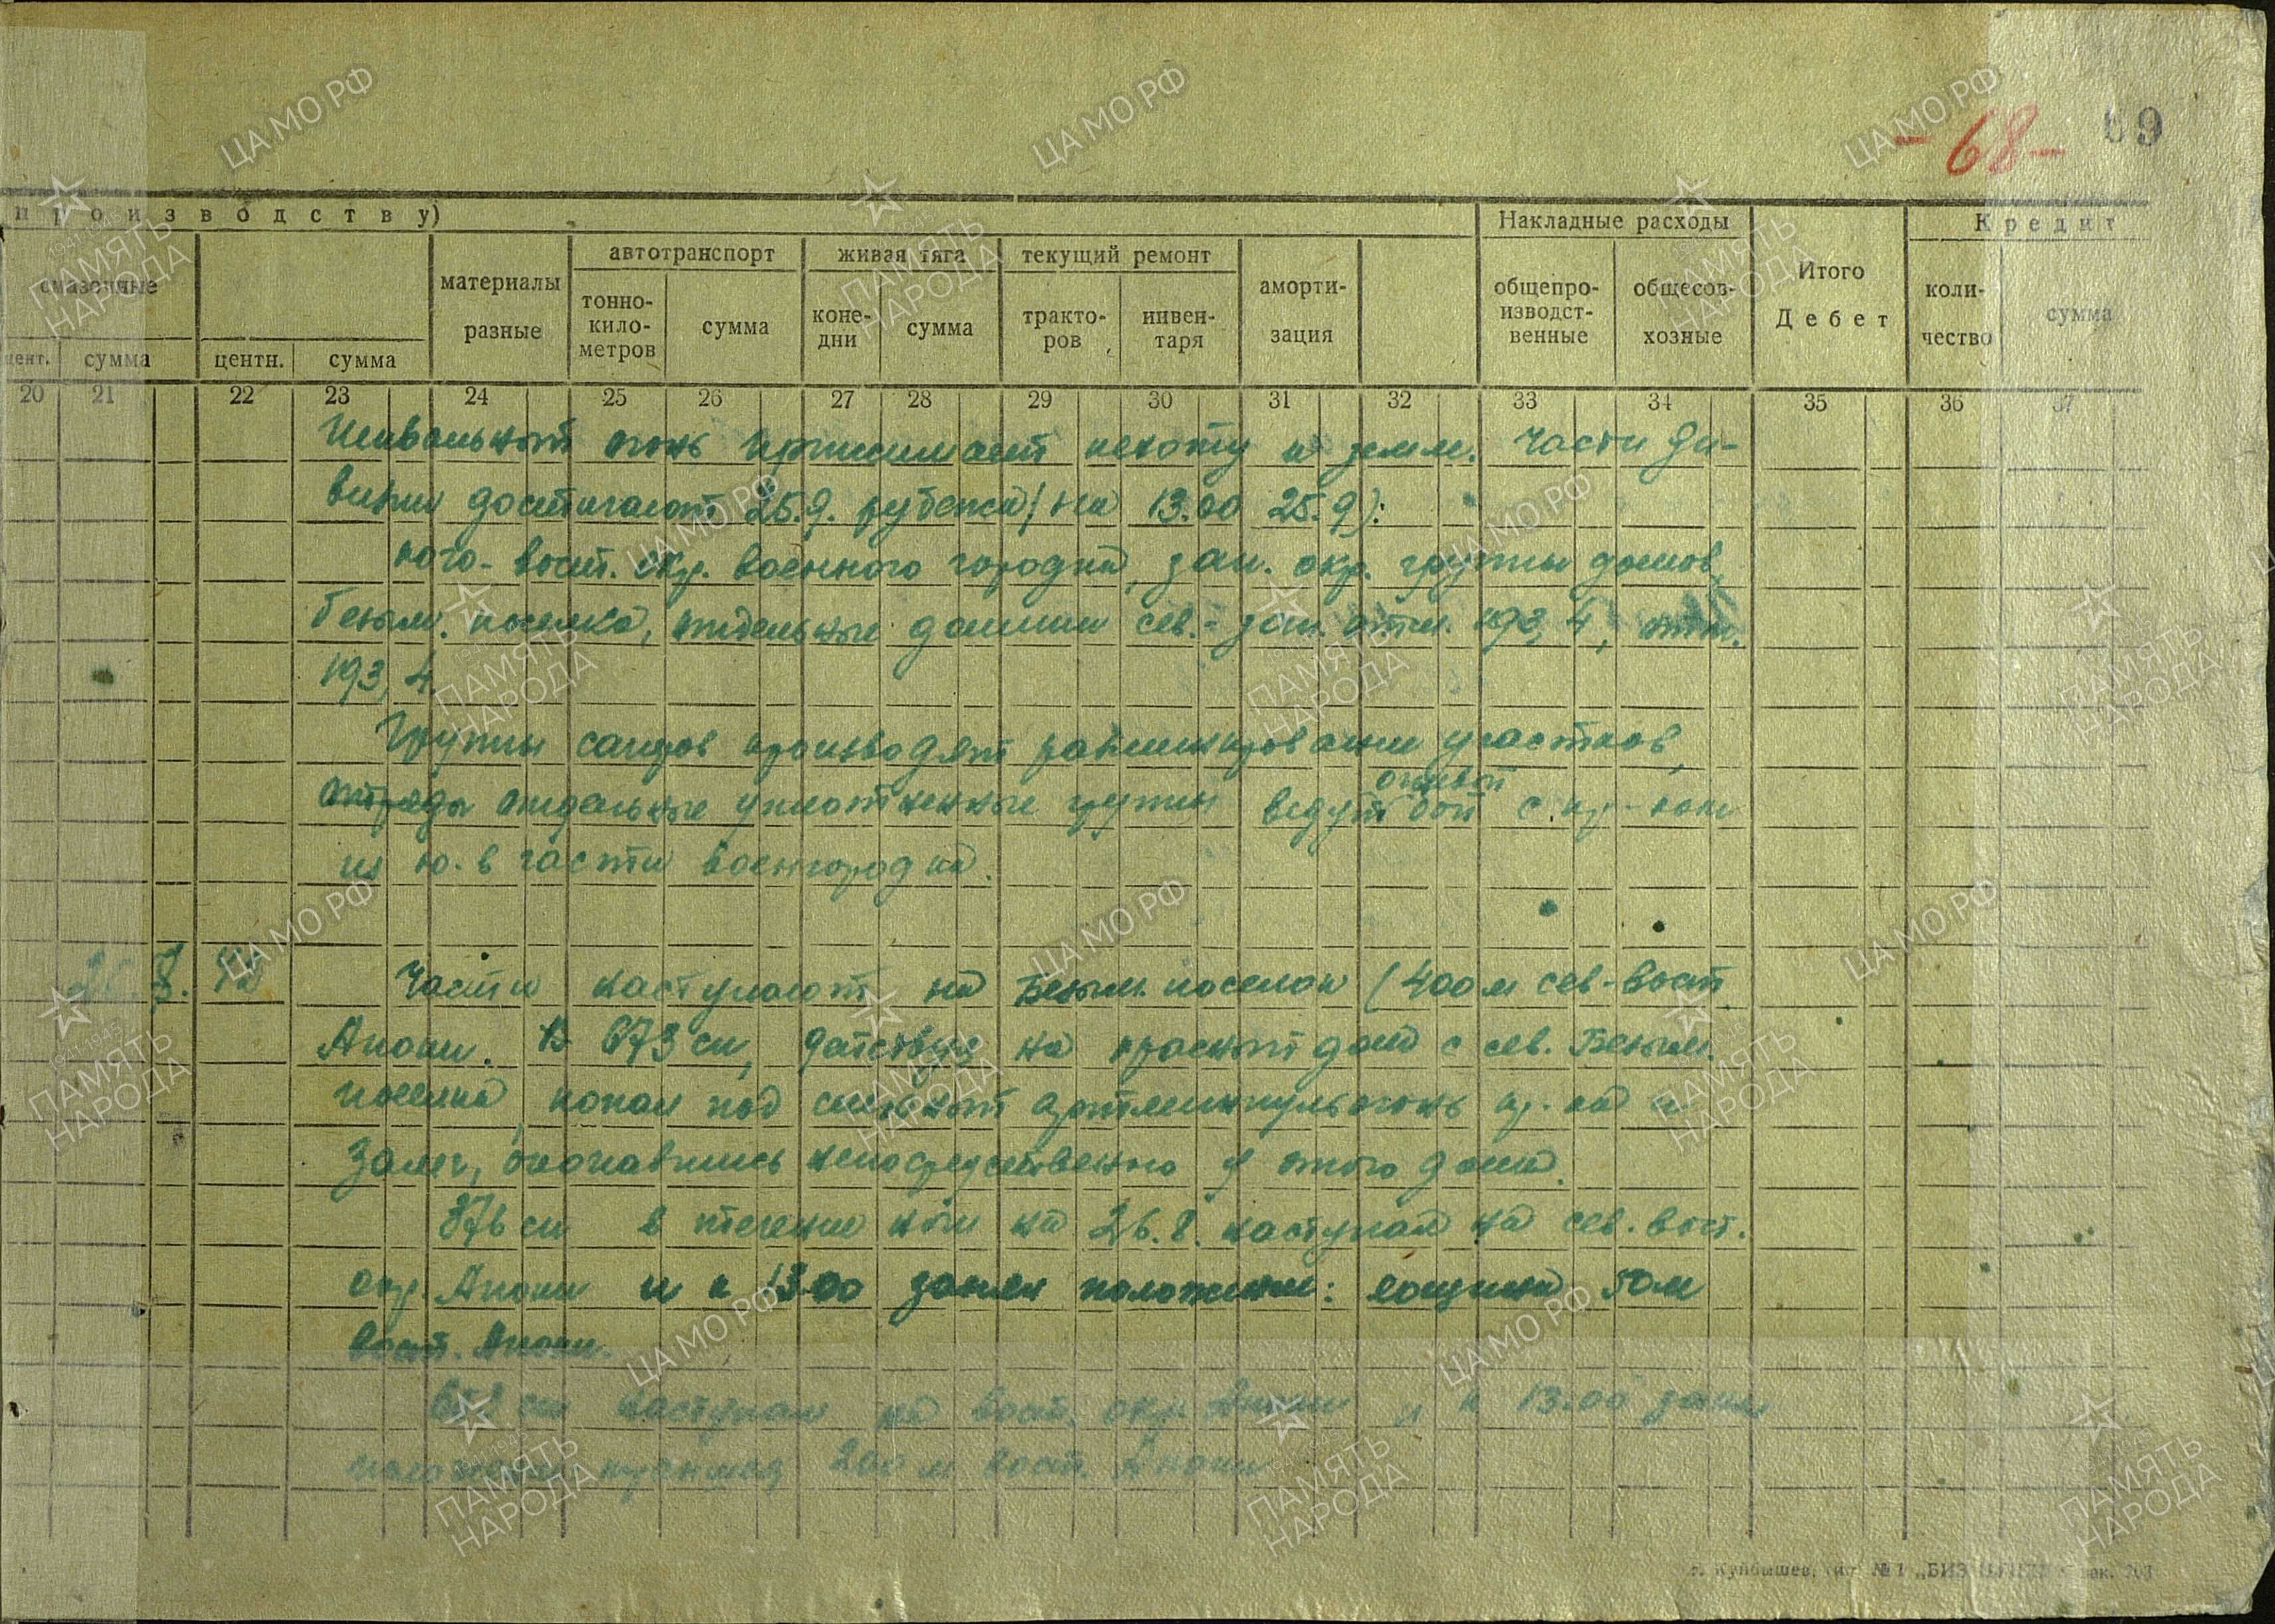 -68- 69
производству)
Накладные расходы
Кредит
смазочные
материалы разные
автотранспорт
живая тяга
текущий ремонт
аморти-
зация
Итого
Дебет
тонно-
кило-
метров
сумма
коне-
дни
сумма
тракто-
ров
инвен-
таря
общепро-
изводст-
венные
общесов-
хозные
коли-
чество
сумма
цент. сумма центн. сумма
20 21 22 23 24 25 26 27 28 29 30 31 32 33 34 35 36 37
Шквальный огонь прижимает пехоту к земле. Части ди-
визии достигают 25.9. рубежа (на 13.00 25.9):
юго-вост. окр. военного городка, зап. окр. группы домов,
безым. поселка, отдельные домики сев.-зап. отм. 193,4, отм.
193,4
Группы сапров производят разминирование участков,
отдельные уплотненные группы ведут огневой бой с пр-ком
из ю.в части военгородка.
8. 42 Части наступают на Безым. поселок (400 м сев-вост.
Анони. В 673 сп, действуя на красный дом с сев. Безым.
поселка, попал под сильный артминпульогонь пр-ка и
залег, окопавшись непосредственно у этого дома.
876 сп в течение ночи на 26.8. наступал на сев. вост.
окр. Анони и к 13.00 занял положение: лощина 50 м
вост. Анони.
сп наступал на вост. окр. Анони и к 13.00 занял
положение 200 м вост. Анони
г. Куйбышев, № 1
ЦАМО РФ
ПАМЯТЬ
НАРОДА
1941-1945